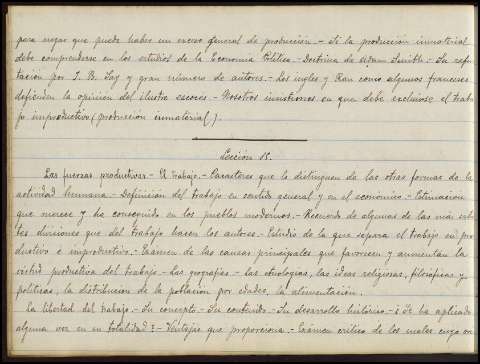 para negar que pueda haber un exceso general de producción.- Si la producción inmaterial
debe comprenderse en los estudios de la Economía Política.- Doctrina de Adam Smith.- Su refu-
tación por J. B. Say y gran número de autores.- Los ingles y Rau como algunos franceses
defienden la opinión del ilustre escocés.- Nosotros insistimos en que debe excluirse el traba-
jo improductivo (producción inmaterial).
Lección
Las fuerzas productivas.- El trabajo.- Caracteres que le distinguen de las otras formas de la
actividad humana.- Definición del trabajo en sentido general y en el económico.- Estimación
que merece y ha conseguido en los pueblos modernos.- Recuerdo de algunas de las más
divisiones que del trabajo hacen los autores.- Estudio de la que separa el trabajo en pro-
ductivo e improductivo.- Exámen de las causas principales que favorecen y aumentan la
virtud productiva del trabajo.- Las geografías - las etnologías, las ideas religiosas, filosóficas y
políticas, la distribución de la población por edades, la alimentación.
La libertad del trabajo.- Su concepto.- Su contenido.- Su desarrollo histórico.- ¿Se ha aplicado
alguna vez en su totalidad?.- Ventajas que proporciona.- Exámen crítico de los males cuyo